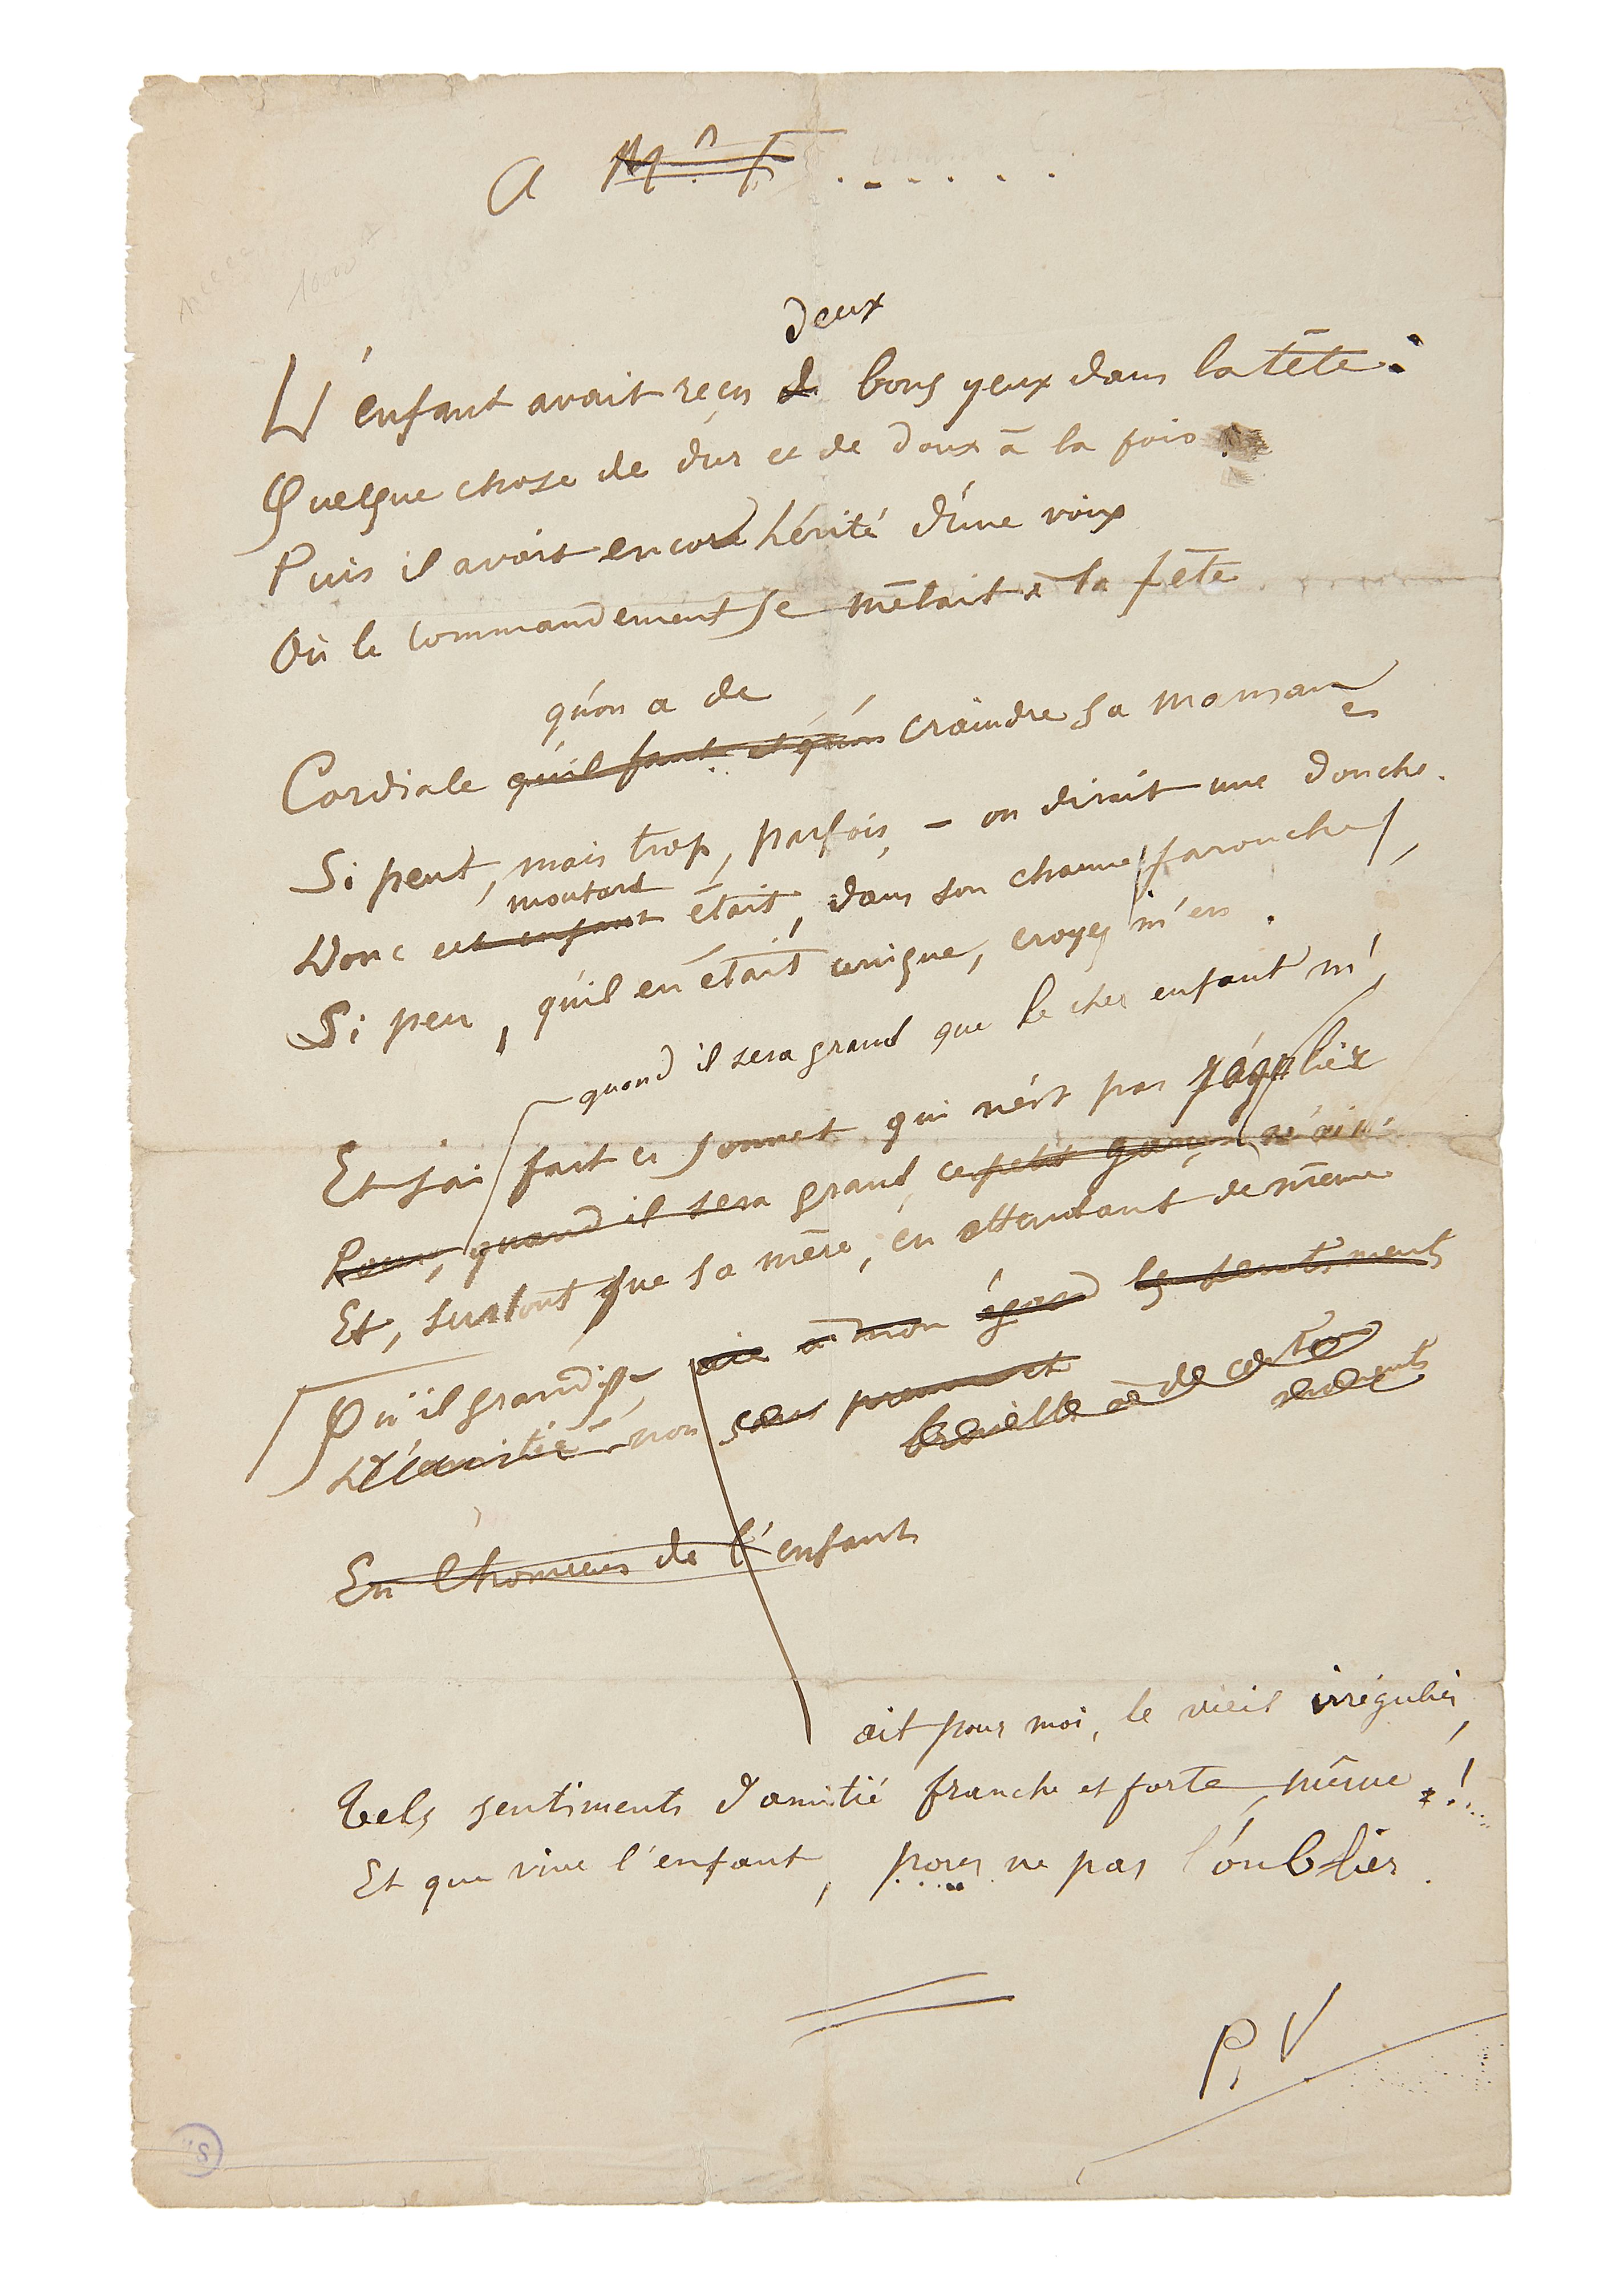 A M^n F. . . . . . .
deux
L'enfant avait reçu d bons yeux dans la tête :
Quelque chose de dur et de doux à la fois.
Puis il avait encore hérité d'une voix
Où le commandement se mêlait à la fête
qu'on a de
Cordiale qu'il faut et qu'on craindre sa maman
en
Si peut, mais trop, parfois, – on dirait une douche.
moutard
Donc cet enfant était, dans son charme farouche,
Si peu, qu'il en était unique, croyez m'en.
quand il sera grand que le cher enfant m'
Et j'ai fait ce sonnet qui n'est pas régulier
Pour, quand il sera grand, ce petit garçon m'ait
Et, surtout que sa mère, en attendant de même
Qu'il grandisse, aie à mon égard les sentiments
D'amitié non
En l'honneur de l'enfant
ait pour moi, le vieil irrégulier,
Tels sentiments d'amitié franche et forte, même !...
Et que vive l'enfant, pour ne pas l'oublier.
P. V